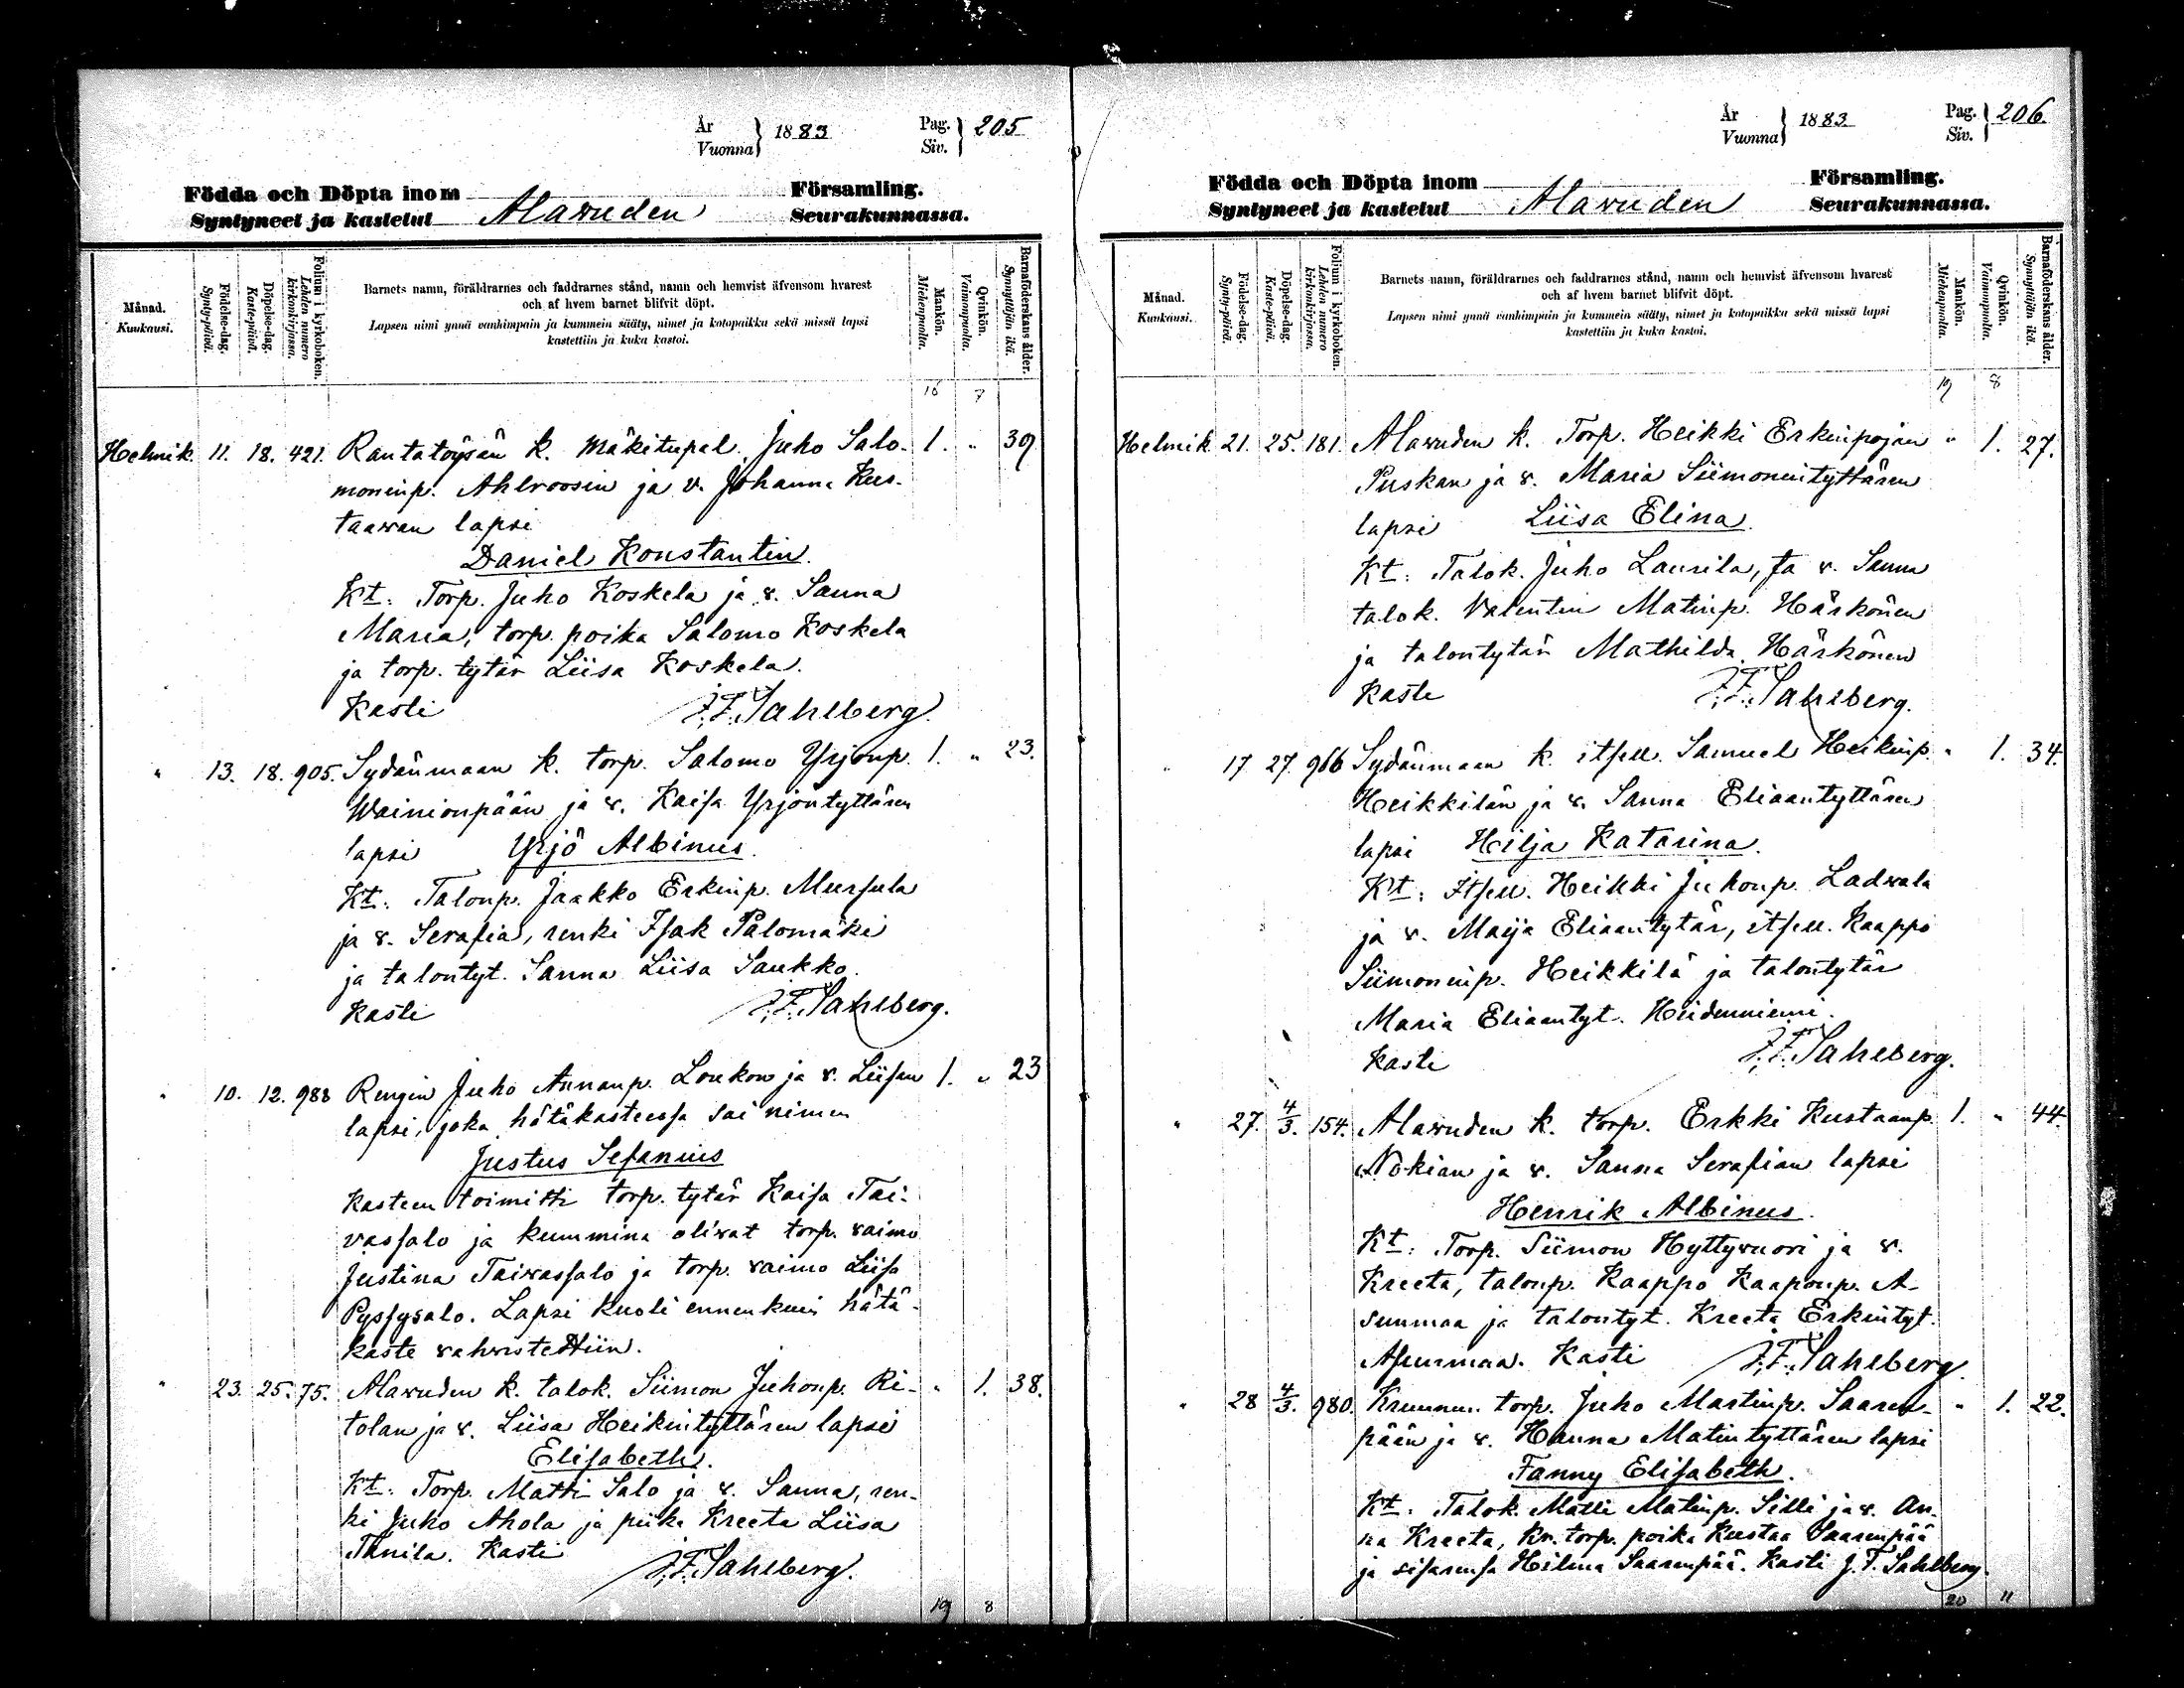 År
Vuonna } 1883
Pag.
Siv. } 205
Födda och Döpta inom Församling.
Syntyneet ja kastetut Alavuden Seurakunnassa.
Månad.
Kuukausi.
Födelse-dag.
Synty-päivä.
Döpelse-dag.
Kaste-päivä.
Folium i kyrkoboken.
Lehden numero kirkonkirjassa.
Barnets namn, föräldrarnes och faddrarnes stånd, namn och hemvist äfvensom hvarest
och af hvem barnet blifvit döpt.
Lapsen nimi ynnä vanhimpain ja kummein sääty, nimet ja kotopaikka sekä missä lapsi
kastettiin ja kuka kastoi.
Mankön.
Miehenpuolta.
Qvinkön.
Vaimonpuolta.
Barnaföderskans ålder.
Synnyttäjän ikä.
16 7
Helmik. 11. 18. 421. Rantatöysän k. mäkitupal. Juho Salo- 1. " 39
moninp. Ahlroosin ja v. Johanna Kus-
taavan lapsi
Daniel Konstantin.
Kt: Torp. Juho Koskela ja v. Sanna
Maria, torp. poika Salomo Koskela
ja torp. tytär Liisa Koskela.
Kasti J.F. Sahlberg.
" 13. 18. 905. Sydänmaan k. torp. Salomo Yrjönp. 1. " 23.
Wainionpään ja v. Kaisa Yrjöntyttären
lapsi Yrjö Albinus.
Kt: Talonp. Jaakko Erkinp. Mursula
ja v. Serafia, renki Isak Palomäki
ja talontyt. Sanna Liisa Saukko.
Kasti J.F. Sahlberg.
" 10. 12. 988 Rengin Juho Annanp. Loukon ja v. Liisan 1. " 23
lapsi, joka hätäkasteessa sai nimen
Justus Sefanius
Kasteen toimitti torp. tytär Kaisa Tai-
vassalo ja kummina olivat torp. vaimo
Justina Taivassalo ja torp. vaimo Liisa
Pyssysalo. Lapsi kuoli ennenkuin hätä-
kaste vahvistettiin.
" 23. 25. 75. Alavuden k. talok. Siimon Juhonp. Ri- " 1. 38.
tolan ja v. Liisa Heikintyttären lapsi
Elisabeth.
Kt: Torp. Matti Salo ja v. Sanna, ren-
ki Juho Ahola ja piika Kreeta Liisa
Tanila. Kasti J.F. Sahlberg.
19 8
År
Vuonna } 1883
Pag.
Siv. } 206
Födda och Döpta inom Församling.
Syntyneet ja kastetut Alavuden Seurakunnassa.
Månad.
Kuukausi.
Födelse-dag.
Synty-päivä.
Döpelse-dag.
Kaste-päivä.
Folium i kyrkoboken.
Lehden numero kirkonkirjassa.
Barnets namn, föräldrarnes och faddrarnes stånd, namn och hemvist äfvensom hvarest
och af hvem barnet blifvit döpt.
Lapsen nimi ynnä vanhimpain ja kummein sääty, nimet ja kotopaikka sekä missä lapsi
kastettiin ja kuka kastoi.
Mankön.
Miehenpuolta.
Qvinkön.
Vaimonpuolta.
Barnaföderskans ålder.
Synnyttäjän ikä.
19 8
Helmik 21. 25. 181. Alavuden k. Torp. Heikki Erkinpojan " 1. 27.
Puskan ja v. Maria Siimonintyttären
lapsi Liisa Elina.
Kt: Talok. Juho Laurila, ja v. Sanna
talok. Valentin Matinp. Härkönen
ja talontytär Mathilda Härkönen
Kaste J.F. Sahlberg.
" 17 27. 966 Sydänmaan k. itsell. Samuel Heikinp. " 1. 34.
Heikkilän ja v. Sanna Eliaantyttären
lapsi Hilja Katarina.
Kt: Itsell. Heikki Juhonp. Ladvala
ja v. Maija Eliaantytär, itsell. Kaappo
Siimoninp. Heikkilä ja talontytär
Maria Eliaantyt. Heidenniemi.
Kasti J.F. Sahlberg.
" 27. 4/3. 154. Alavuden k. torp. Erkki Kustaanp. 1. " 44.
Nokian ja v. Sanna Serafian lapsi
Henrik Albinus.
Kt: Torp. Siimon Hyttyvuori ja v.
Kreeta, talonp. Kaappo Kaaponp. A-
sunmaa ja talontyt. Kreeta Erkintyt.
Asunmaa. Kasti J.F. Sahlberg.
" 28 4/3. 980. Kruunun torp. Juho Martinp. Saaren- " 1. 22.
pään ja v. Hanna Matintyttären lapsi
Fanny Elisabeth.
Kt: Talok. Matti Matinp. Silli ja v. An-
na Kreeta, kr. torp. poika Kustaa Saarenpää
ja sisarensa Hilma Saarenpää. Kasti J.F. Sahlberg.
20 11